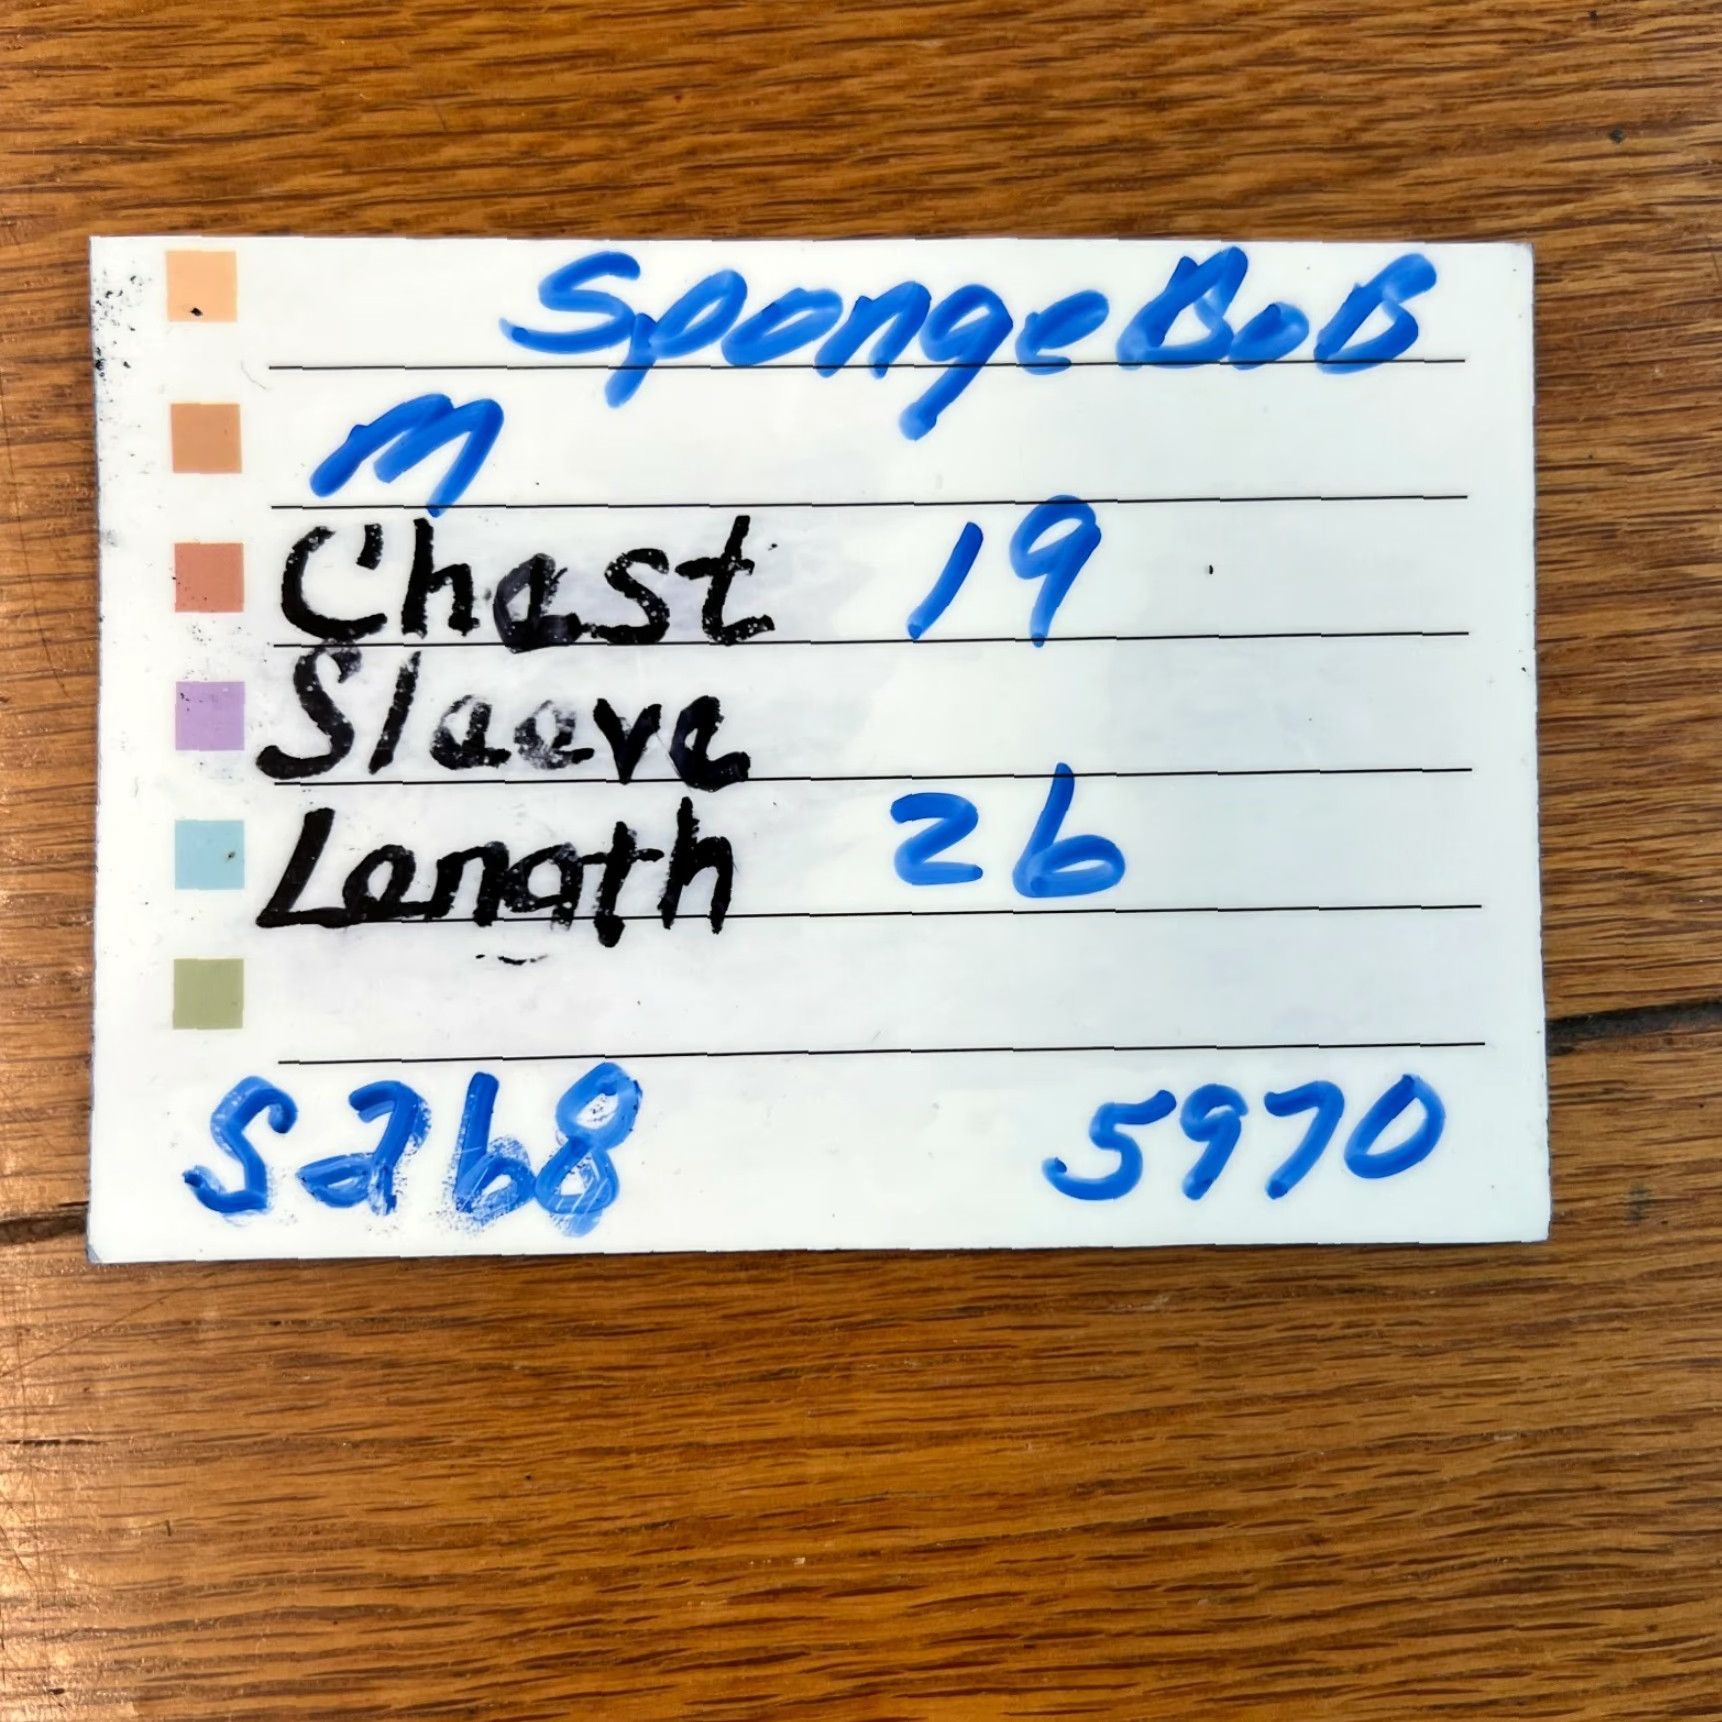 SpongeBoB
M
Chest 19
Sleeve
Length 26
Sab8 5970